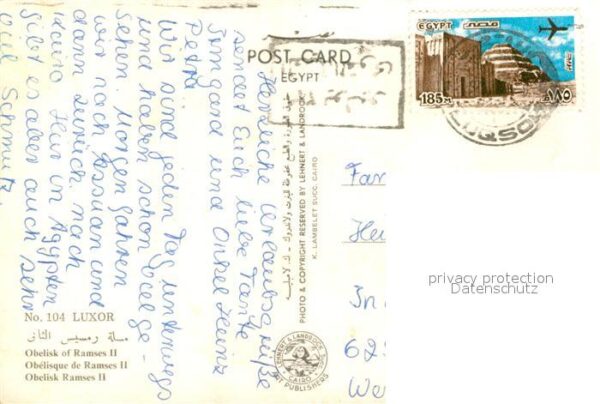 POST CARD
EGYPT
Herzliche Urlaubsgrüße
sendet Euch liebe Tante
Irmgard und Onkel Heinz
Petra
Wir sind jeden Tag unterwegs
und haben schon viel ge-
sehen. Morgen fahren
wir nach Assuan und
dann zurück nach
Kairo. Hier in Ägypten
gibt es aber auch sehr
viel Schmutz.
EGYPT
مصر
185 M
١٨٥
LUXOR
Fam
Hei
In
62
We
privacy protection
Datenschutz
PHOTO & COPYRIGHT RESERVED BY LEHNERT & LANDROCK
K. LAMBELET SUCC. CAIRO
LEHNERT & LANDROCK
CAIRO
ART PUBLISHERS
No. 104 LUXOR
مسلة رمسيس الثانى
Obelisk of Ramses II
Obélisque de Ramses II
Obelisk Ramses II